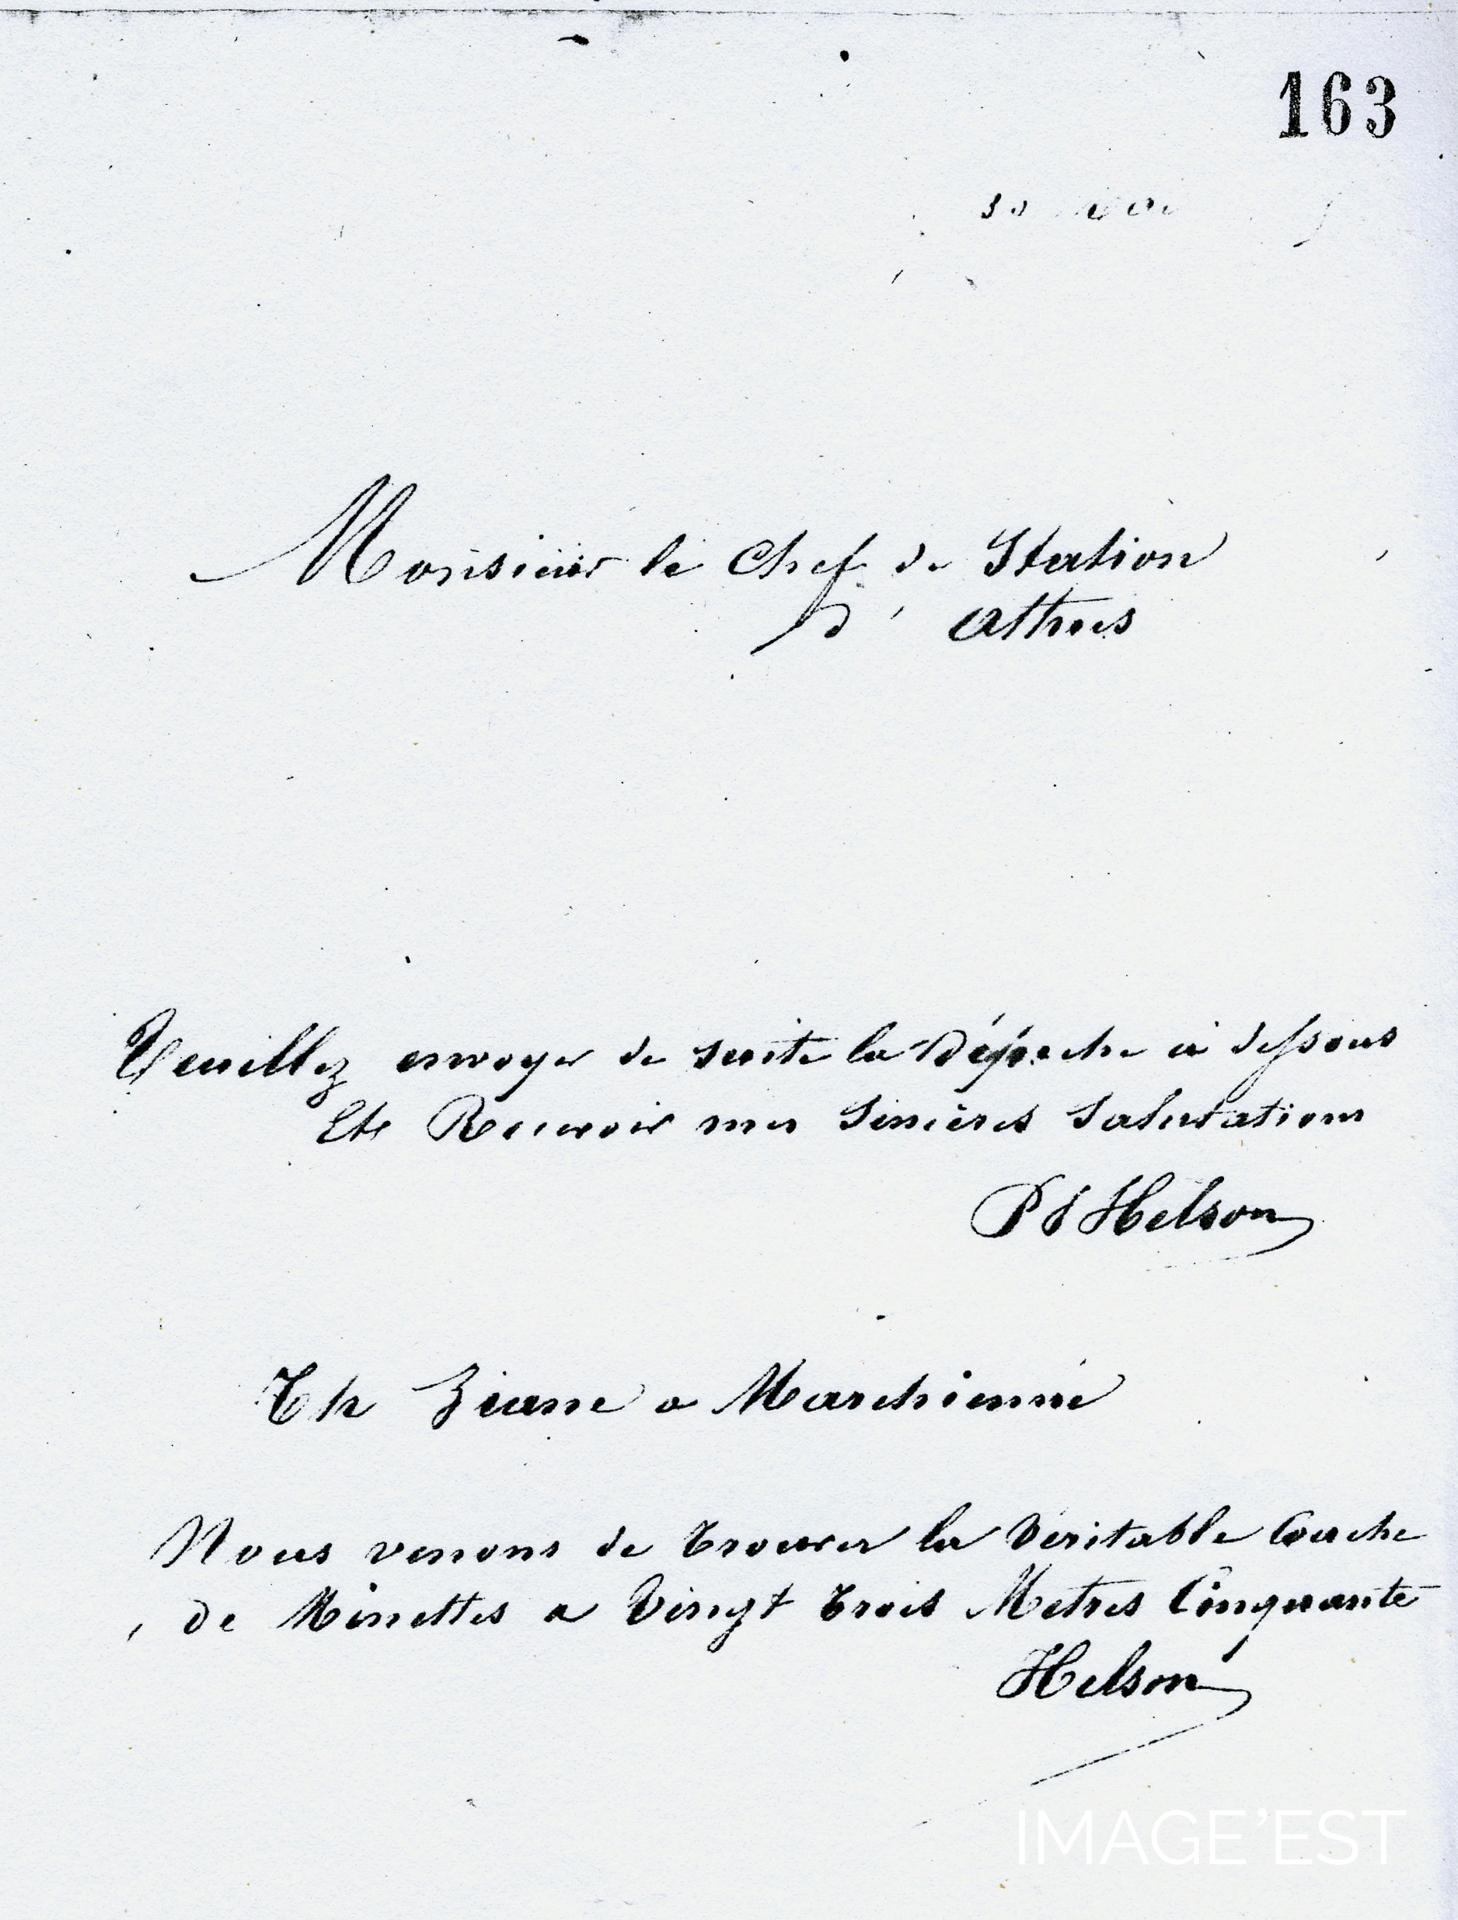 163
Monsieur le Chef de Station
d' Athus
Veuillez envoyer de suite la Dépeche ci dessous
Et Recevoir mes Sincères Salutations
Helson
Th Ziane a Marchienne
Nous venons de trouver la Veritable Couche
de Minettes a Vingt trois Metres Cinquante
Helson
IMAGE'EST